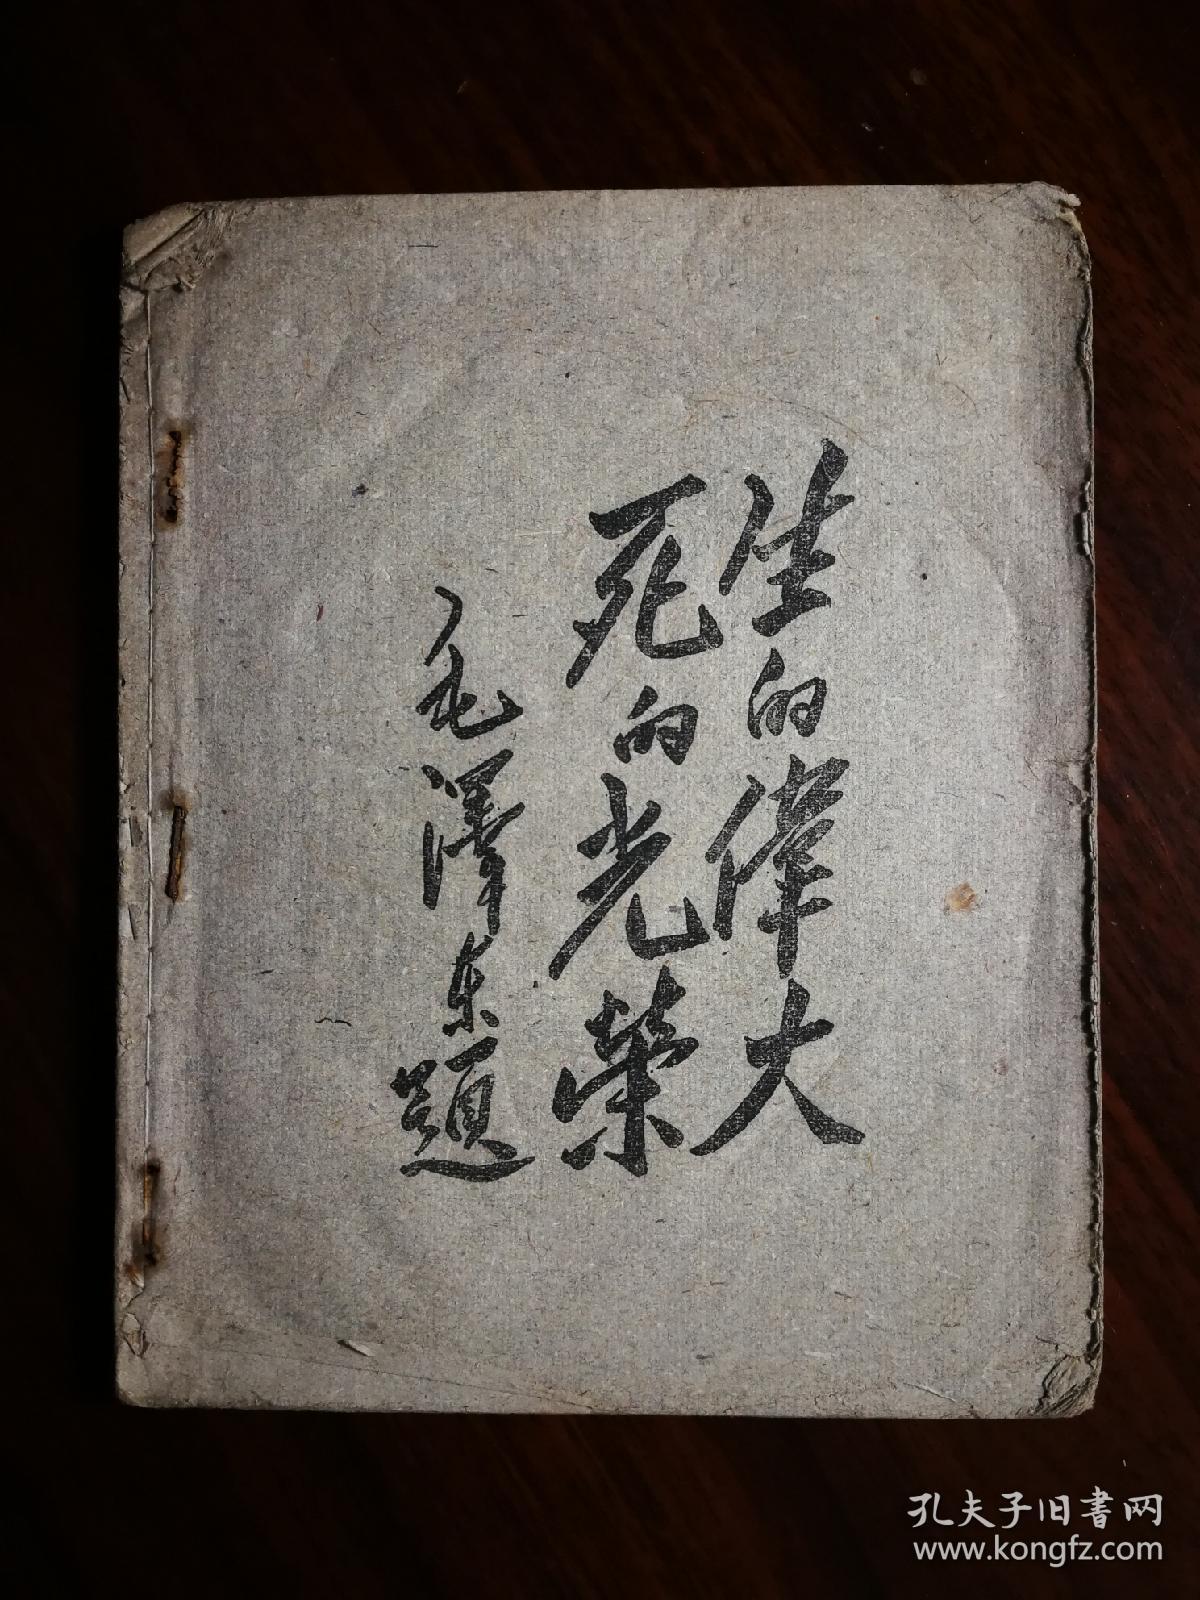 生的偉大
死的光榮
毛澤东題
孔夫子旧書网
www.kongfz.com